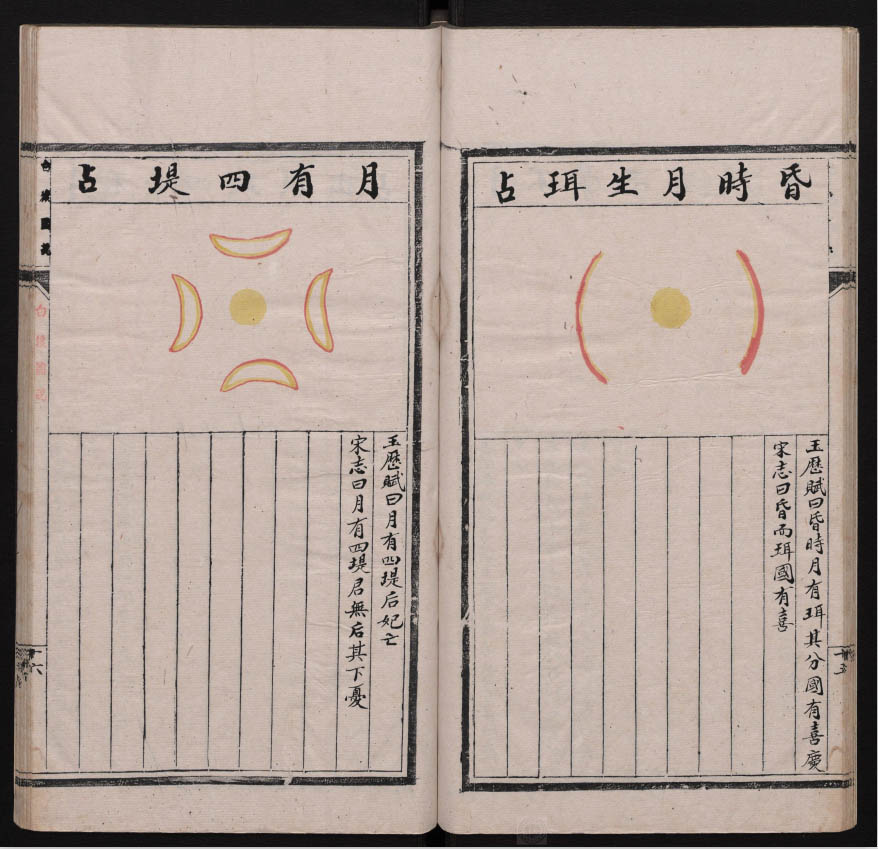 昏時月生珥占
玉歷賦曰昏時月有珥其分國有喜慶
宋志曰昏而珥國有喜
月有四堤占
玉歷賦曰月有四堤后妃亡
宋志曰月有四堤君無后其下憂